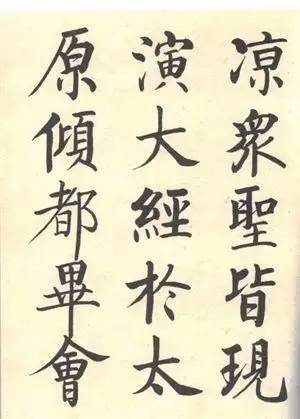 凉眾聖皆現
演大經於太
原傾都畢會